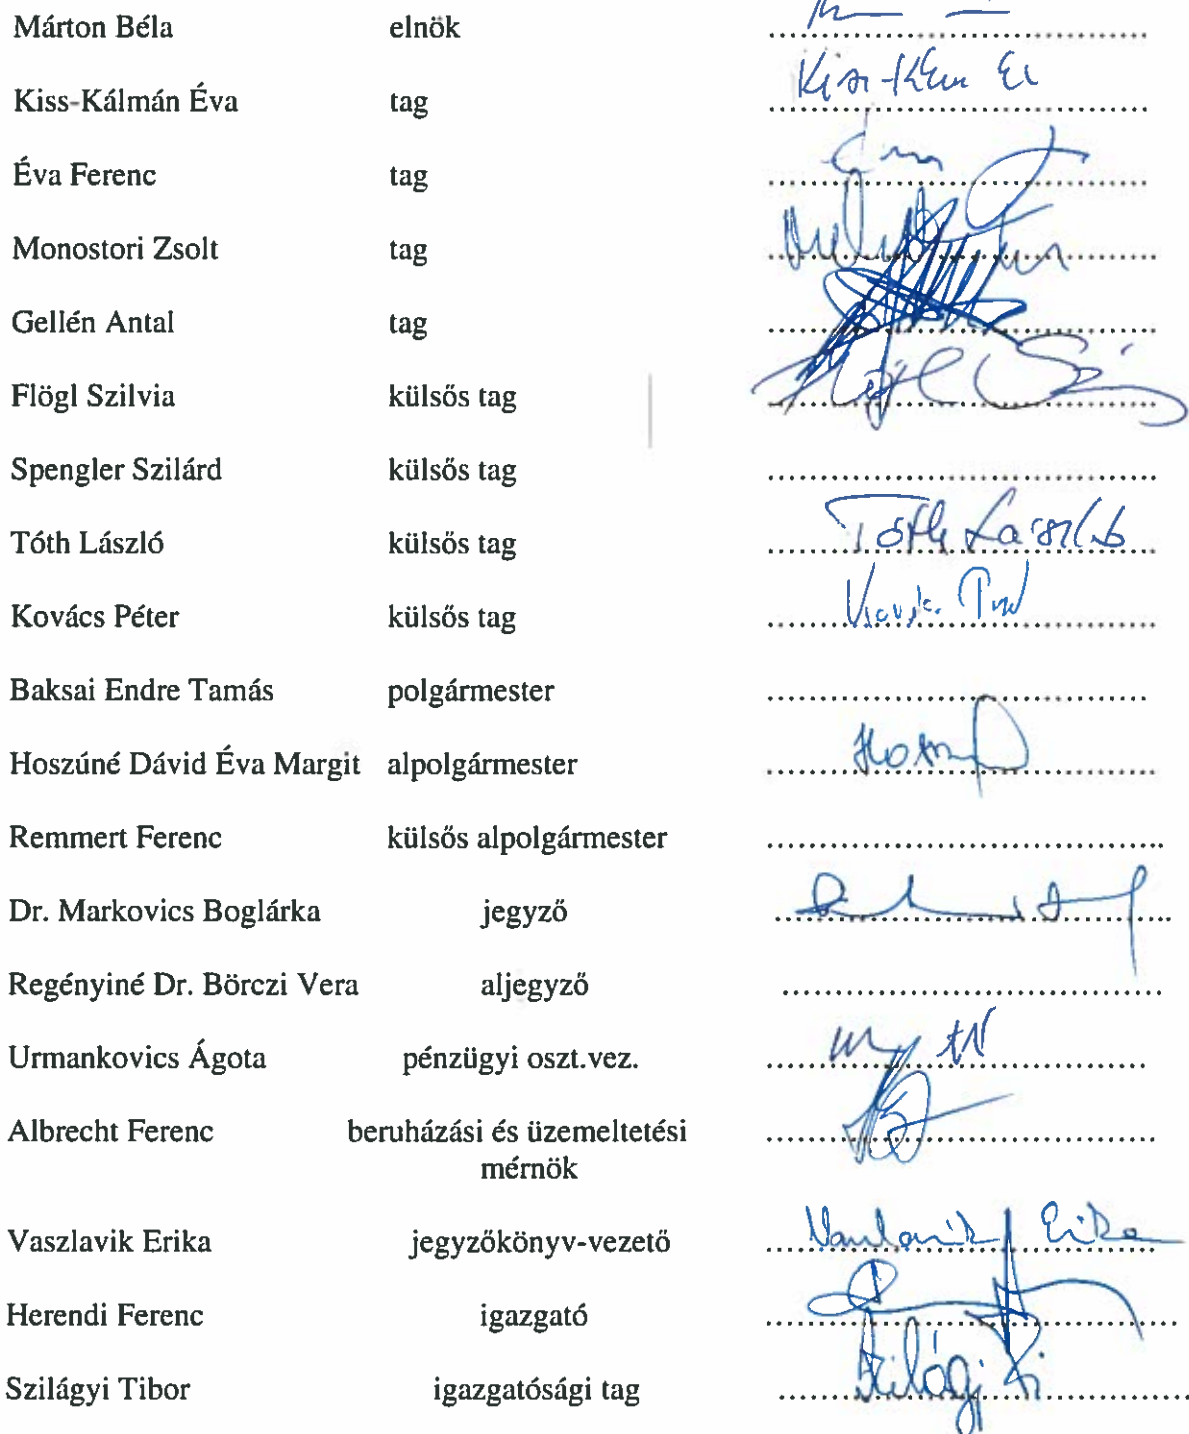 Márton Béla elnök
Kiss-Kálmán Éva tag
Éva Ferenc tag
Monostori Zsolt tag
Gellén Antal tag
Flögl Szilvia külsős tag
Spengler Szilárd külsős tag
Tóth László külsős tag Tóth László
Kovács Péter külsős tag
Baksai Endre Tamás polgármester
Hoszúné Dávid Éva Margit alpolgármester
Remmert Ferenc külsős alpolgármester
Dr. Markovics Boglárka jegyző
Regényiné Dr. Börczi Vera aljegyző
Urmankovics Ágota pénzügyi oszt.vez.
Albrecht Ferenc beruházási és üzemeltetési
mérnök
Vaszlavik Erika jegyzőkönyv-vezető Vaszlavik Erika
Herendi Ferenc igazgató
Szilágyi Tibor igazgatósági tag